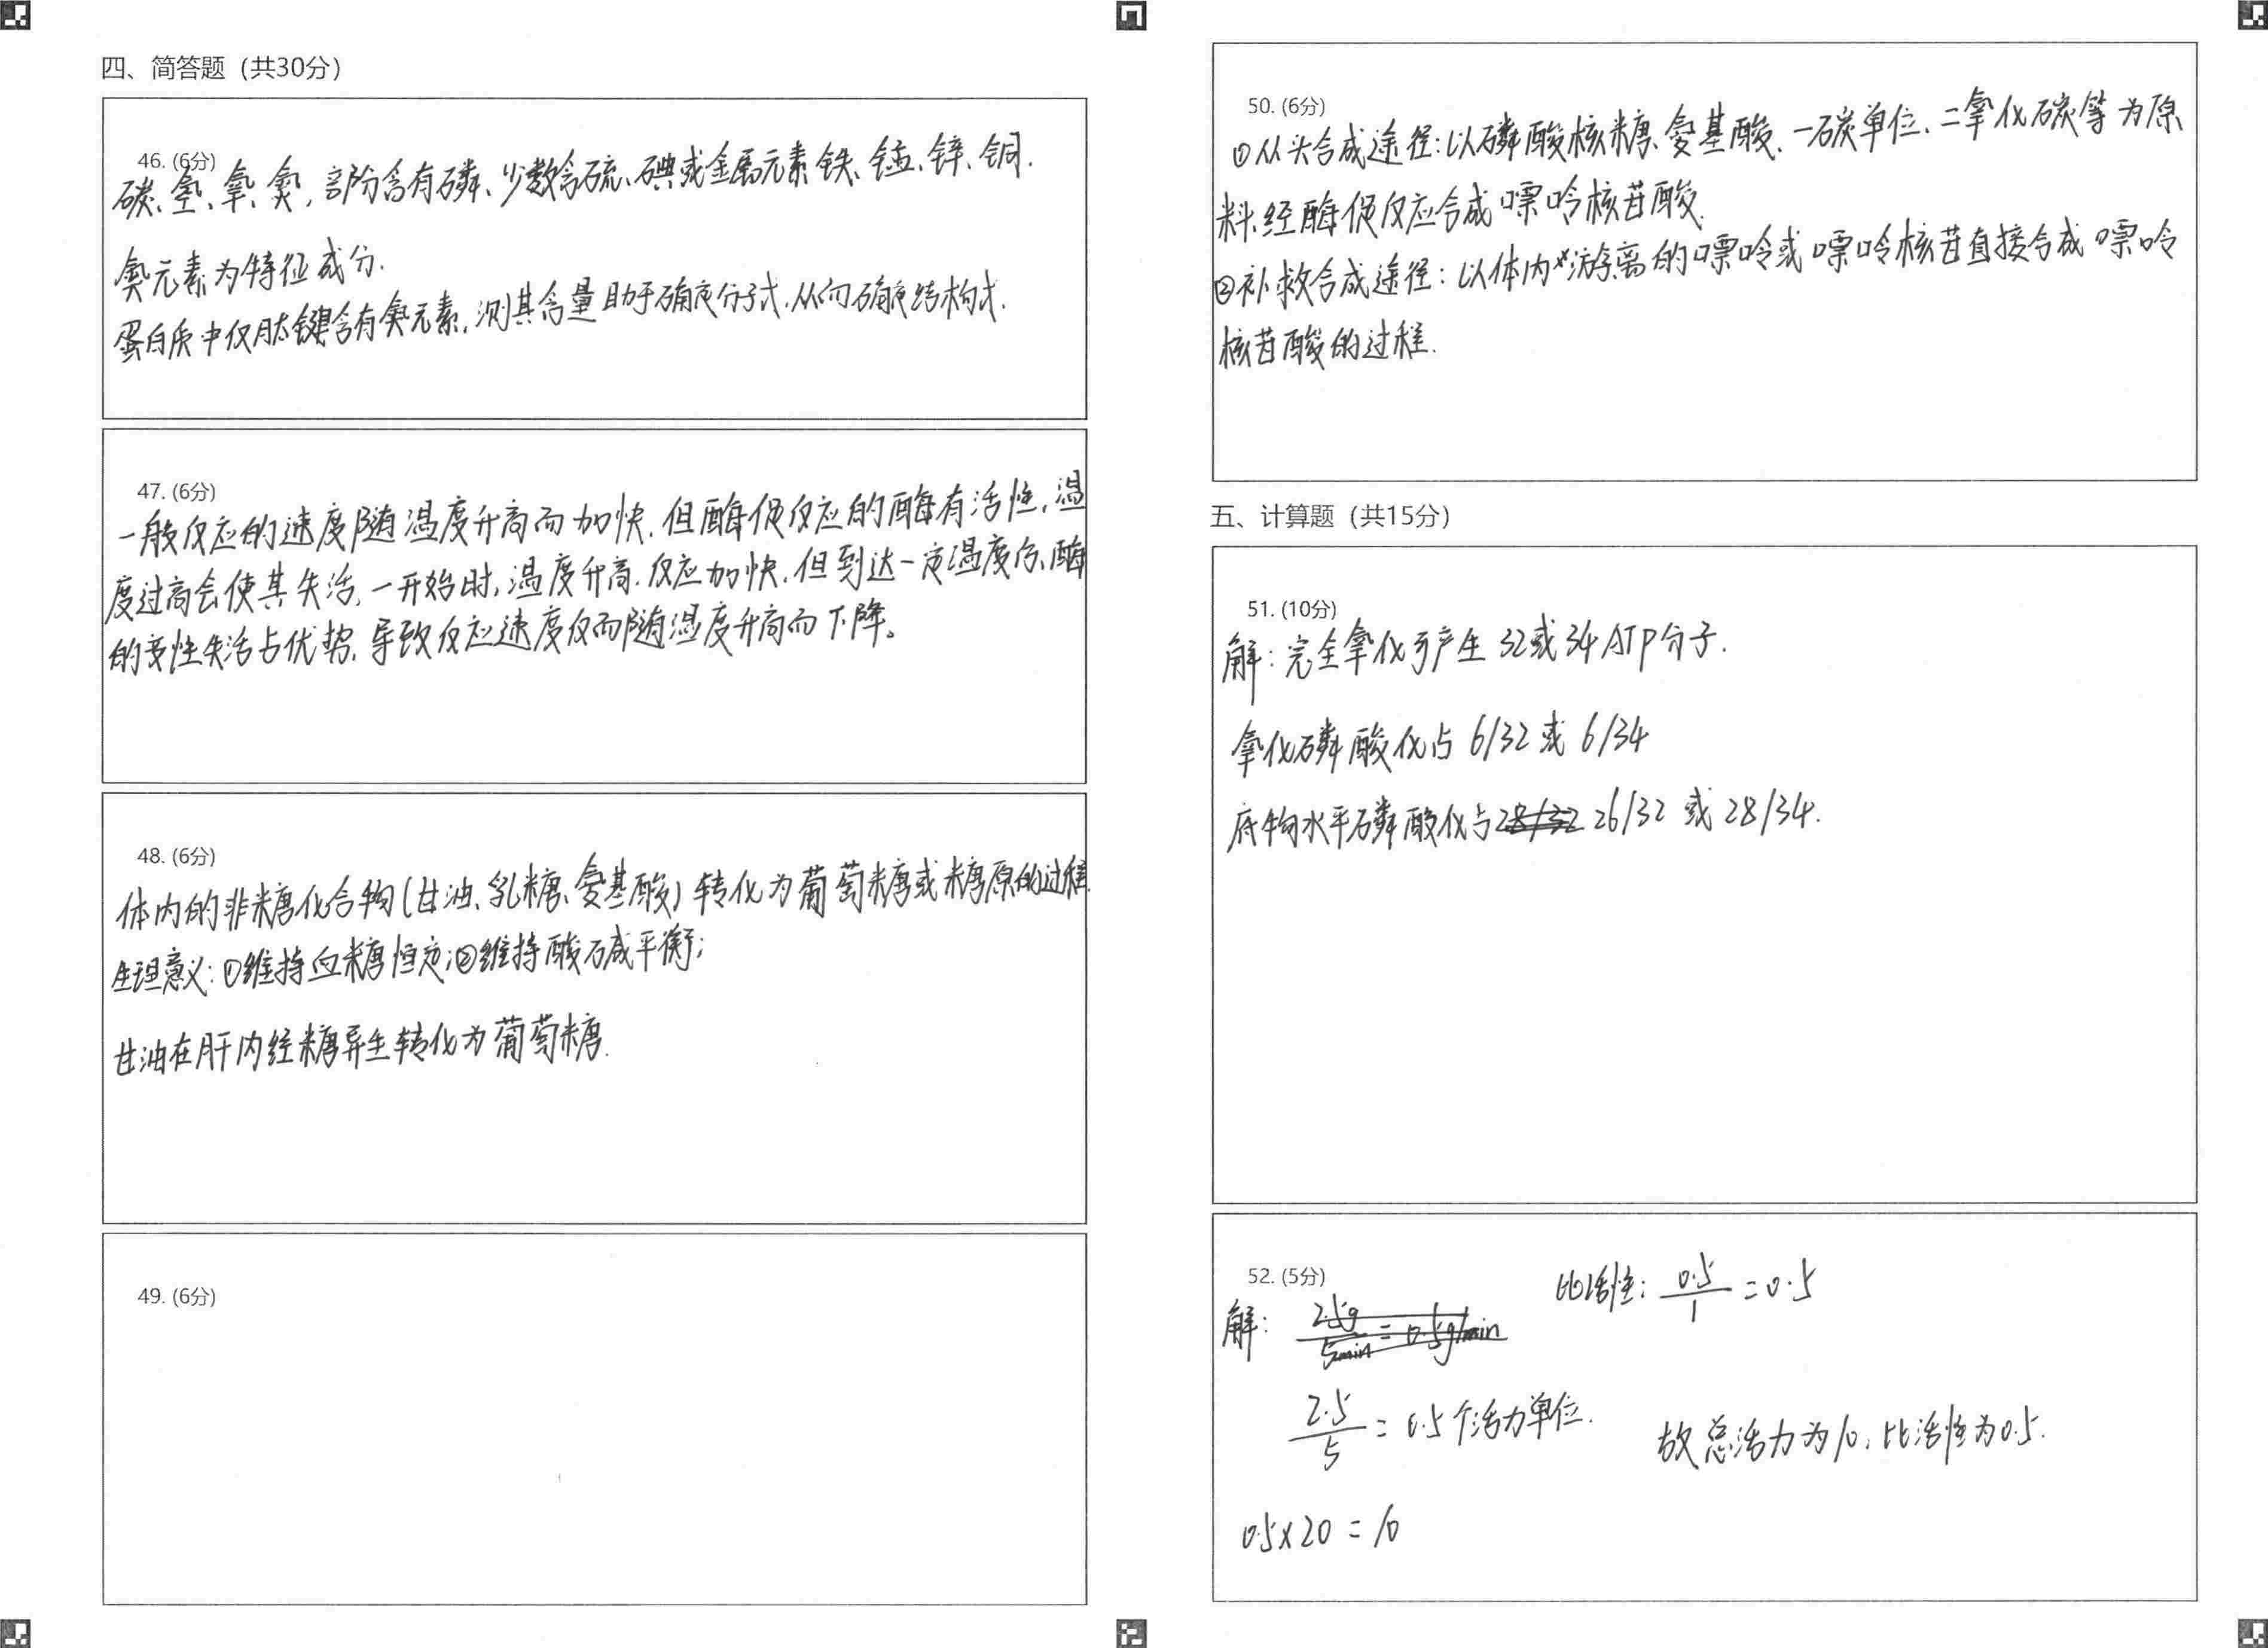 四、简答题（共30分）
46. (6分)
碳、氢、氧、氮，部分含有磷、少数含硫、碘或金属元素铁、锰、锌、铜.
氮元素为特征成分.
蛋白质中仅肽键含有氮元素，测其含量助于确定分子式.从而确定结构式.
47. (6分)
一般反应的速度随温度升高而加快.但酶促反应的酶有活性，温
度过高会使其失活,一开始时,温度升高.反应加快.但到达一定温度后,酶
的变性失活占优势.导致反应速度反而随温度升高而下降。
48. (6分)
体内的非糖化合物(甘油、乳糖、氨基酸)转化为葡萄糖或糖原的过程.
生理意义:①维持血糖恒定;②维持酸碱平衡;
甘油在肝内经糖异生转化为葡萄糖.
49. (6分)
50. (6分)
①从头合成途径:以磷酸核糖、氨基酸、一碳单位、二氧化碳等为原
料,经酶促反应合成嘌呤核苷酸.
②补救合成途径：以体内游离的嘌呤或嘌呤核苷直接合成嘌呤
核苷酸的过程.
五、计算题（共15分）
51. (10分)
解:完全氧化可产生32或34ATP分子.
氧化磷酸化占6/32或6/34
底物水平磷酸化占28/32 26/32 或 28/34.
52. (5分)
解: 2.5g/5min = 0.5g/min
2.5/5 = 0.5个活力单位.
0.5×20=10
比活性: 0.5/1 =0.5
故总活力为10,比活性为0.5.